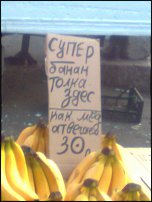 СУПЕР
банан
толка
здес
как лево
атвешаем
30р